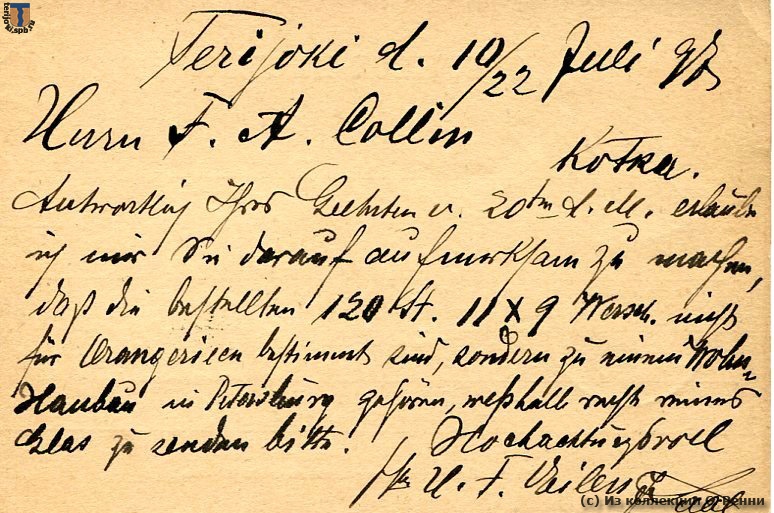 Terijoki d. 10/22 Juli 97
Herrn F. A. Collin
Kotka.
Antwortlich Ihres Geehrten v. 20tm d. M. erlaube
ich mir Sie darauf aufmerksam zu machen,
daß die bestellten 120 St. 11 x 9 Wersch. nicht
für Orangerieen bestimmt sind, sondern zu einem Wohn-
Hausbau in Petersburg gehören, weßhalb recht reines
Glas zu senden bitte.
Hochachtungsvoll
H. F.
(c) Из коллекции
terijoki.spb.ru